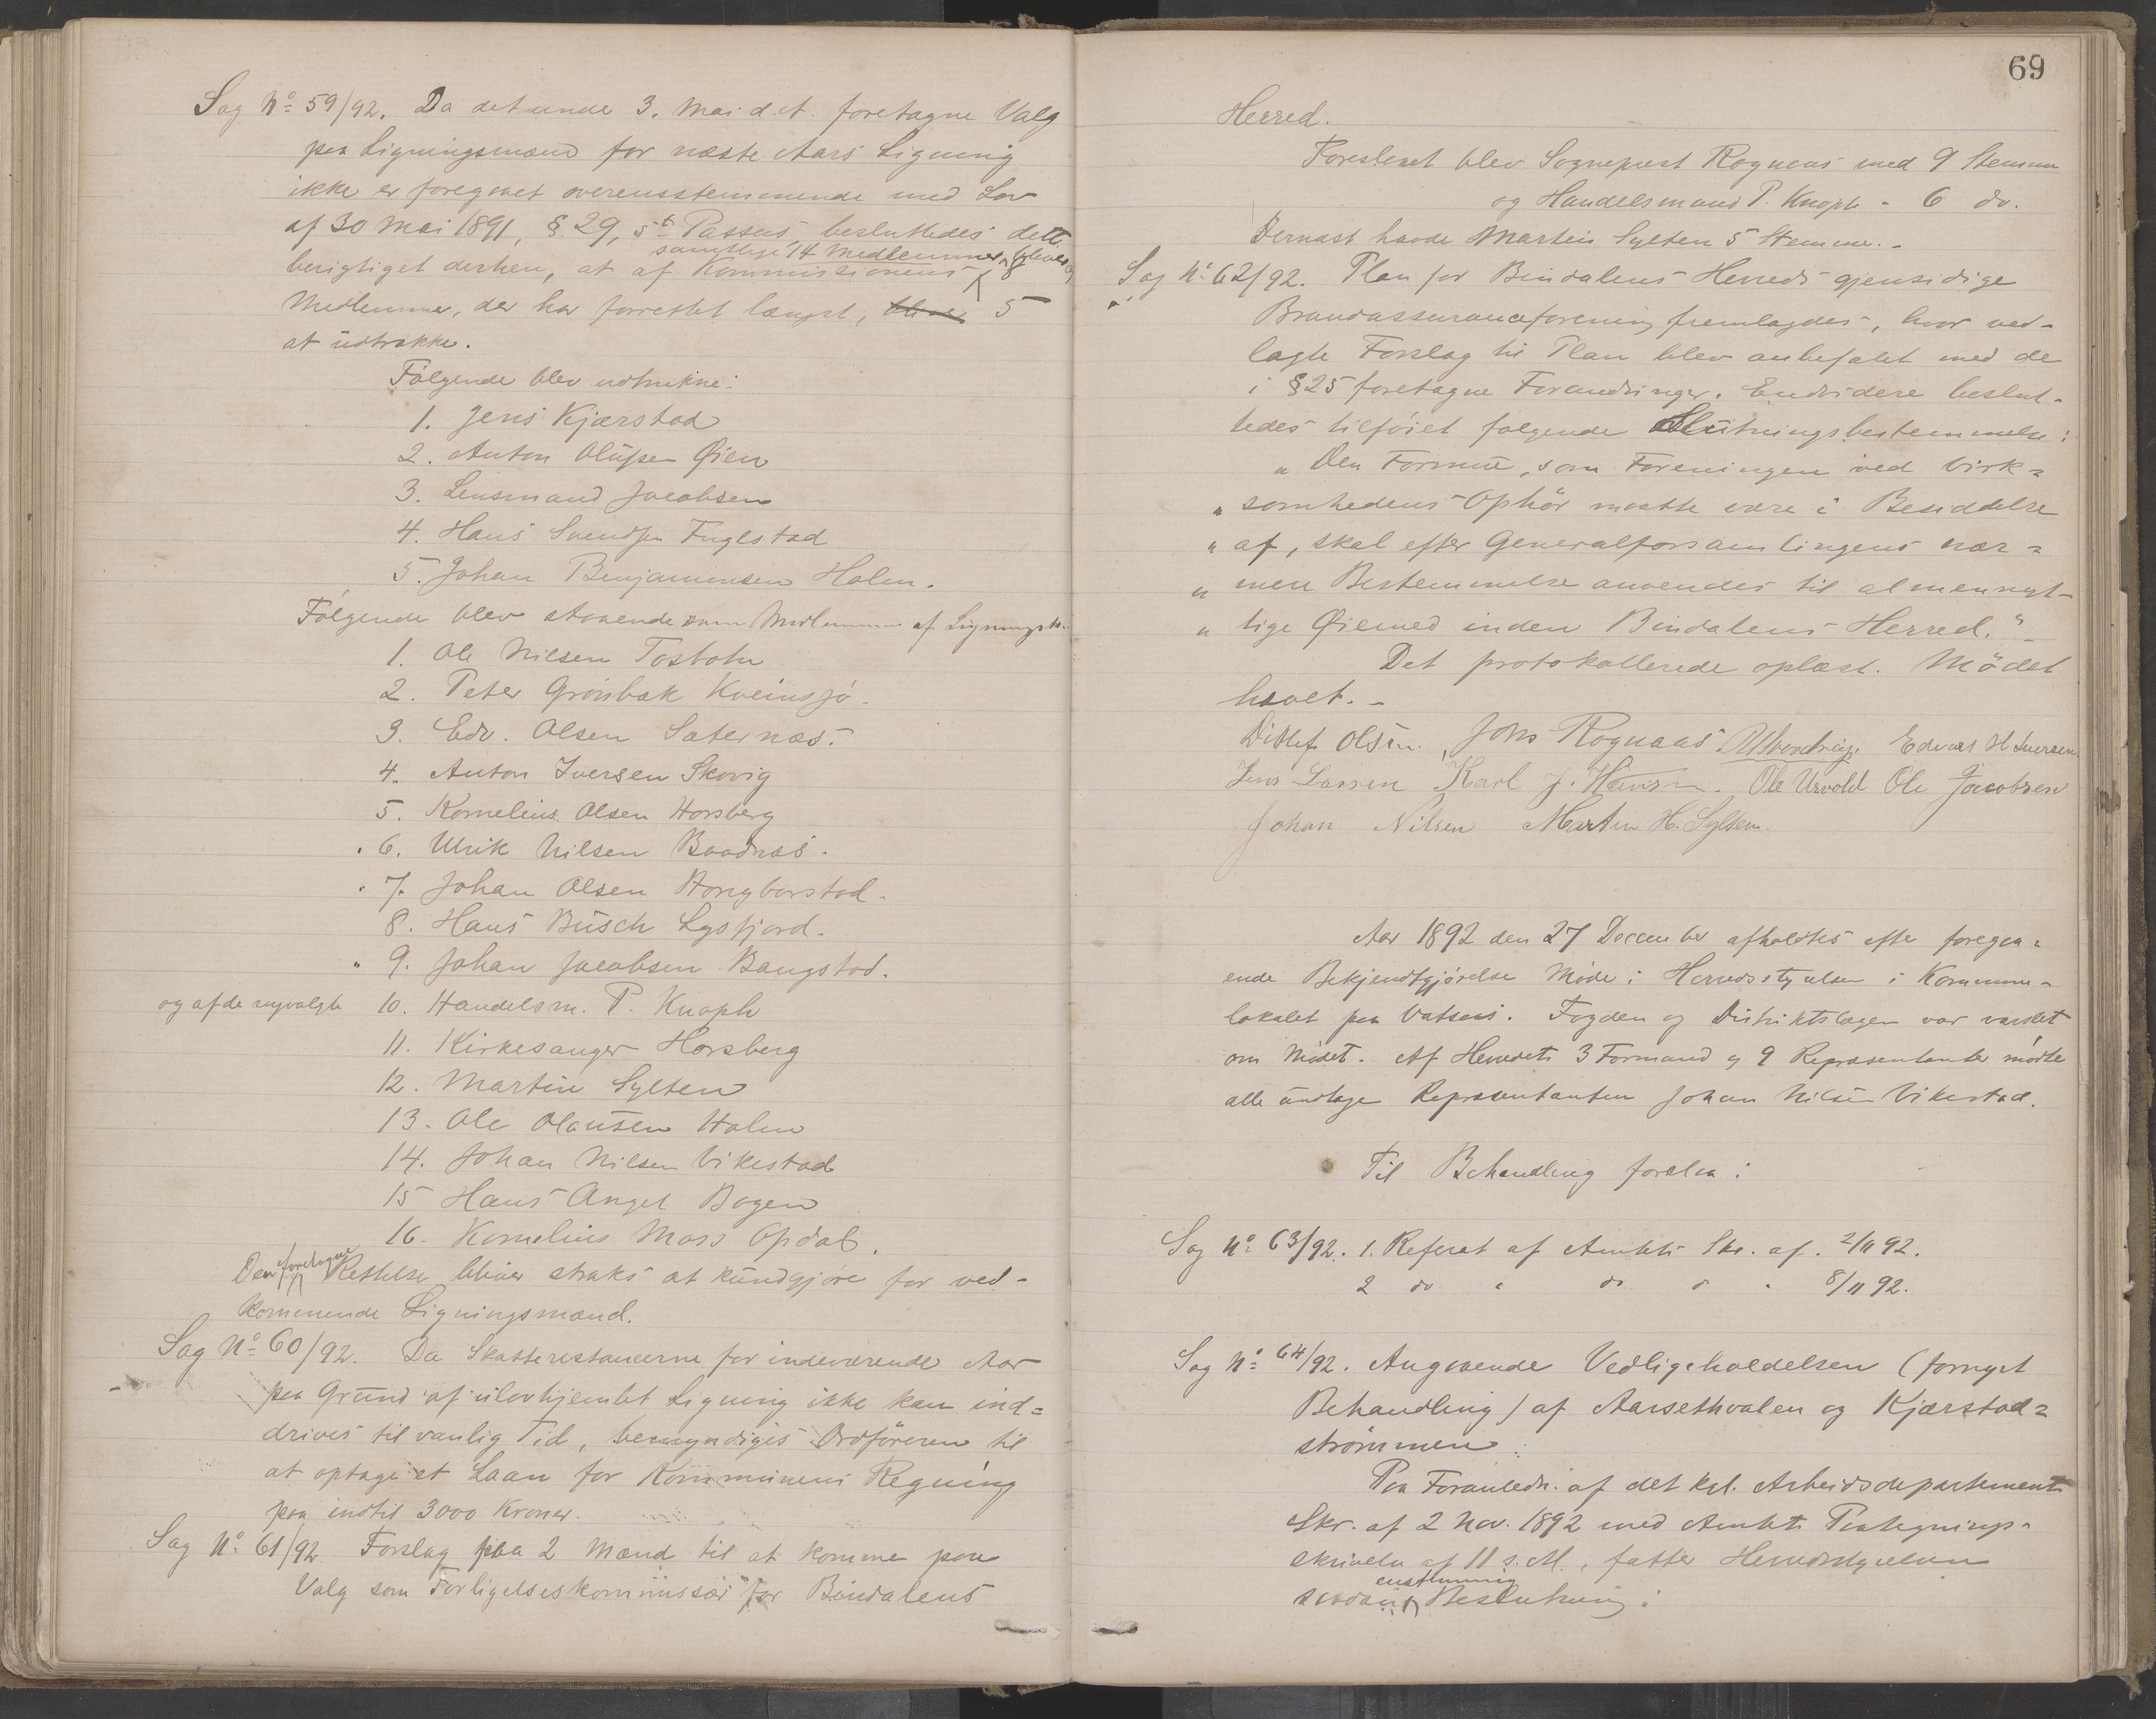 Sag No 59/92. Da det under 3. Mai d. A. foretagne Valg
paa Ligningsmænd for næste Aars Ligning
ikke er foregaaet overensstemmende med Lov
af 30 Mai 1891, § 29, 5te Passus besluttedes dette
samtlige 14 Medlemmer, bliver
berigtiget derhen, at af Kommissionens 8
Medlemmer, der har forrettet længst, bliver 5
at udtrække.
Følgende blev udtrukne:
1. Jens Kjærstad
2. Anton Olufsen Øien
3. Lensmand Jacobsen
4. Hans Svendsen Fuglstad
5. Johan Benjaminsen Holm.
Følgende blev staaende som Medlemmer af Ligningsk.
1. Ole Nilsen Tosbotn
2. Peter Grønbæk Kveinsjø.
3. Edv. Olsen Sæternæs.
4. Anton Iversen Skovig
5. Kornelius Olsen Horsberg
6. Ulrik Nilsen Baadnæs.
7. Johan Olsen Hongborstad.
8. Hans Busch Lysfjord.
" 9. Johan Jacobsen Bangstad.
og af de nyvalgte 10. Handelsm. P. Knoph
11. Kirkesanger Horsberg
12. Martin Sylten
13. Ole Olausen Holm
14. Johan Nilsen Vikestad
15 Hans Angel Bogen
16. Kornelius Moss Opdal.
foretagne
Den Rettelse bliver straks at kundgjøre for ved-
kommende Ligningsmænd.
Sag No 60/92. Da Skatterestancerne for indeværende Aar
paa Grund af ulovhjemlet Ligning ikke kan ind=
drives til vanlig Tid, bemyndiges Ordføreren til
at optage et Laan for Kommunens Regning
paa indtil 3000 Kroner.
Sag No 61/92. Forslag paa 2 Mænd til at komme paa
Valg som Forligelseskommissær for Bindalens
69
Herred.
Foreslaaet blev Sogneprest Rognaas med 9 Stemmer
og Handelsmand P. Knoph - 6 do.
Dernæst havde Martin Sylten 5 Stemmer. -
Sag No 62/92. Plan for Bindalens Herreds gjensidige
Brandassuranceforening fremlagdes, hvor ved-
lagte Forslag til Plan blev anbefalet med de
i § 25 foretagne Forandringer. Endvidere beslut-
tedes tilføiet følgende Slutningsbestemmelse:
" Den Formue, som Foreningen ved Virk=
" somhedens Ophør maatte være i Besiddelse
" af, skal efter Generalforsamlingens nær=
" mere Bestemmelse anvendes til almennyt-
" tige Øiemed inden Bindalens Herred."
Det protokollerede oplæst. Mödet
hævet. -
Ditlef Olsen. Johs Rognaas Edvard H Iversen
Jens Larsen Karl J. Hansen. Ole Urvold Ole Jacobsen
Johan Nilsen Martin H. Sylten.
Aar 1892 den 27 December afholdtes efter foregaa=
ende Bekjendtgjørelse Møde i Herredsstyrelsen i Kommune-
lokalet paa Vatsaas. Fogden og Distriktslægen var varslet
om Mødet. Af Herredets 3 Formænd og 9 Repræsentanter mødte
alle undtage Repræsentanten Johan Nilsen Vikestad.
Til Behandling forelaa:
Sag No 63/92. 1. Referat af Amtets Skr. af 2/11 92.
2 do " do " 8/11 92.
Sag No 64/92. Angaaende Vedligeholdelsen (fornyet
Behandling) af Aarsethvalen og Kjærstad=
strømmen:
Paa Foranledn. af det kgl. Arbeidsdepartements
Skr. af 2 Nov. 1892 med Amtets Paategnings-
skrivelse af 11 s. M., fatter Herredsstyrelsen
enstemmig
saadan Beslutning: